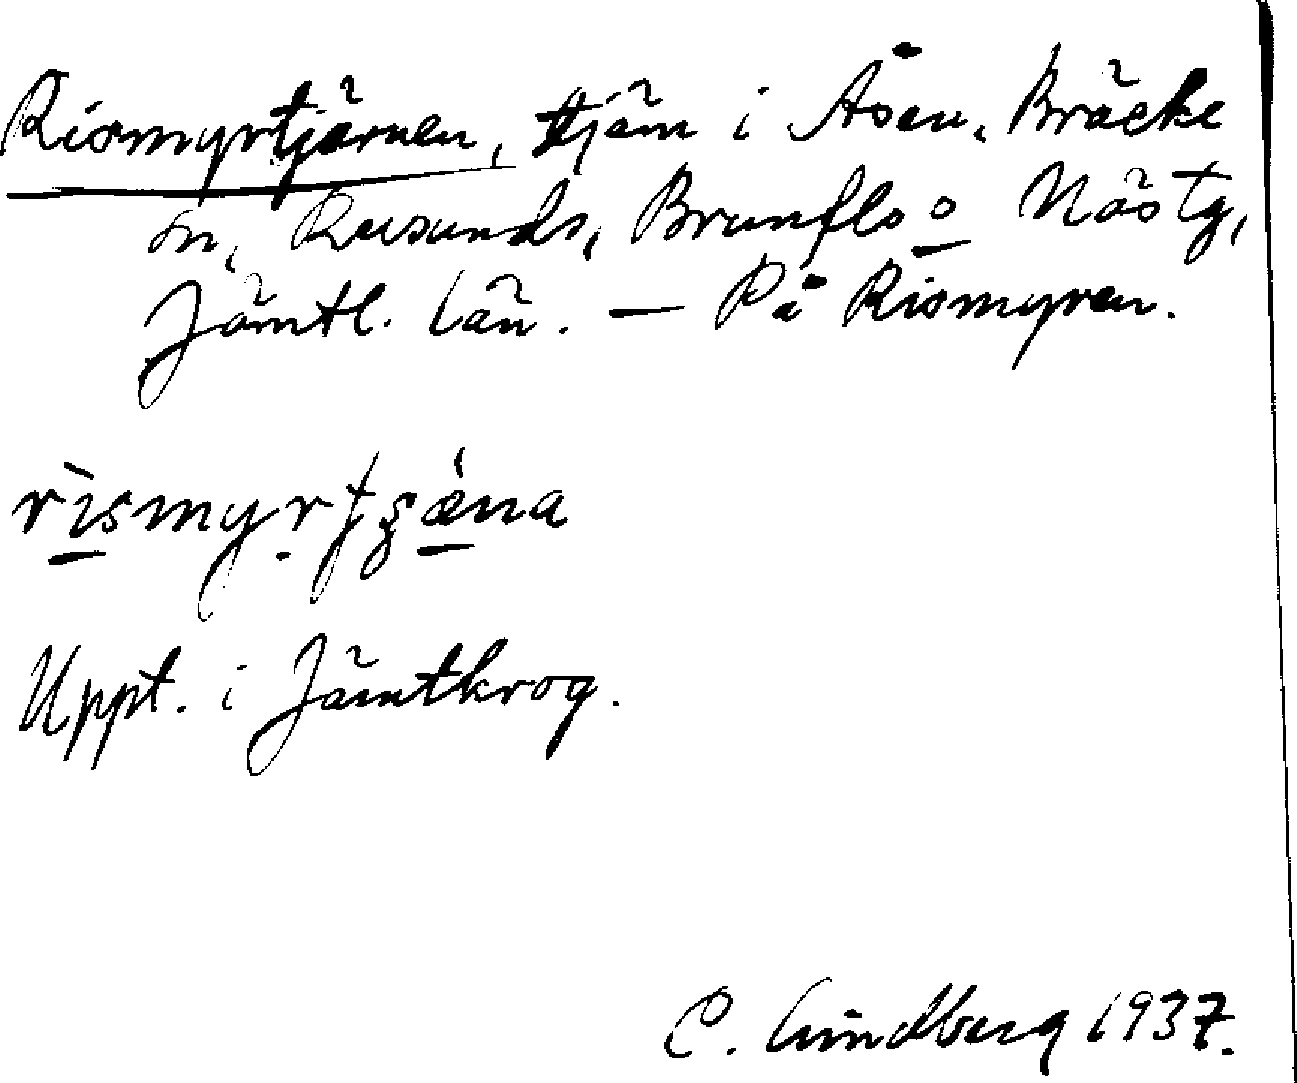 Rismyrtjärnen, tjärn i Åsen, Bräcke
sn, Revsunds, Brunflo o Näs tg,
Jämtl. län. — På Rismyren.
rìsmyrtʂǽna
Uppt. i Jämtkrog.
C. Lindberg 1937.